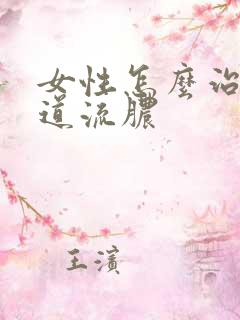 女性怎麼治
道流膿
王濱